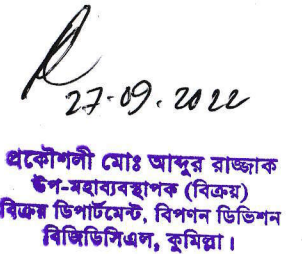 27.09.2022
প্রকৌশলী মোঃ আব্দুর রাজ্জাক
উপ-মহাব্যবস্থাপক (বিক্রয়)
বিক্রয় ডিপার্টমেন্ট, বিপণন ডিভিশন
বিজিডিসিএল, কুমিল্লা।